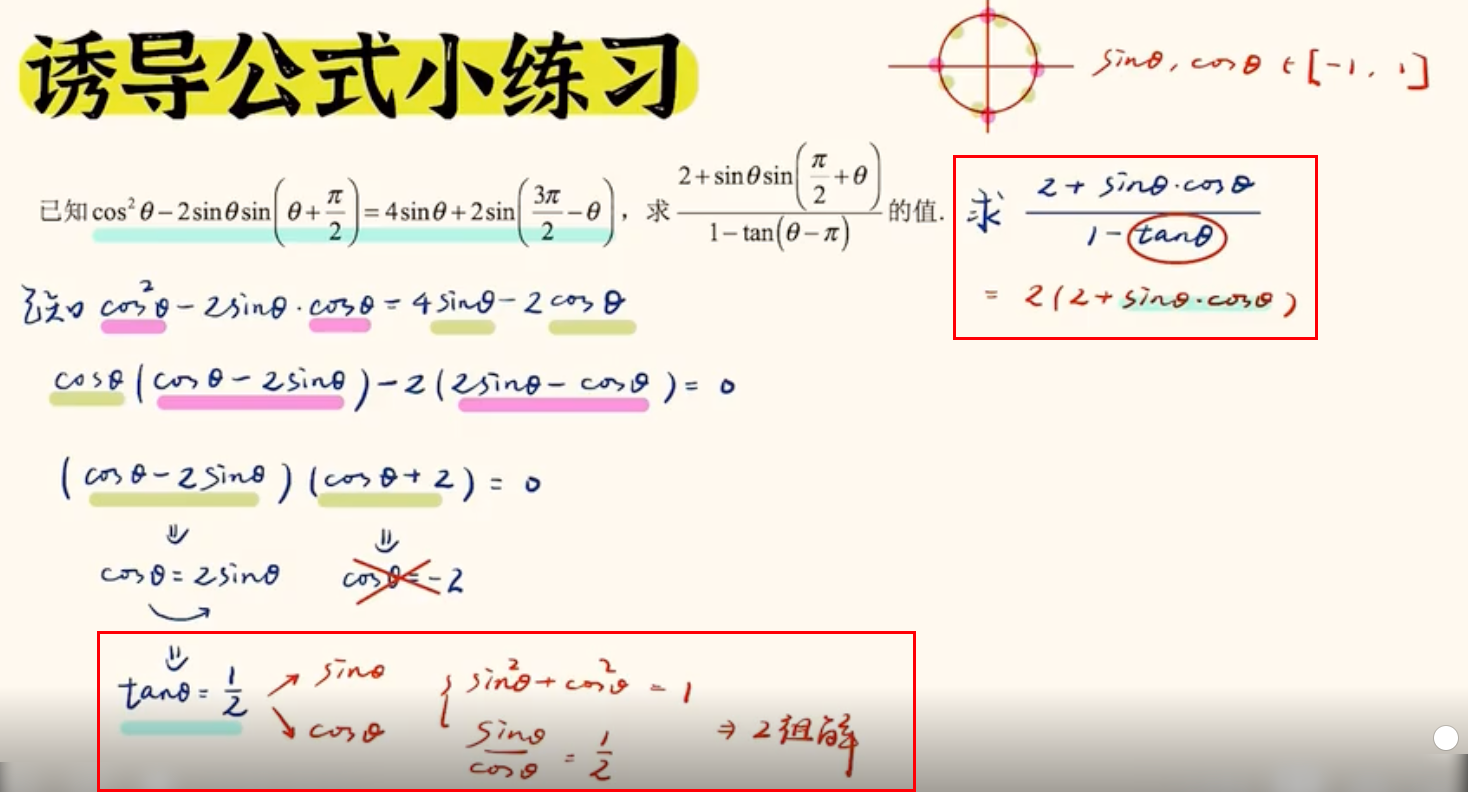 诱导公式小练习
sinθ, cosθ ∈ [-1, 1]
已知 cos²θ-2sinθsin(θ+π/2)=4sinθ+2sin(3π/2-θ)，求 (2+sinθsin(π/2+θ))/(1-tan(θ-π)) 的值.
求 (2+sinθ·cosθ)/(1-tanθ)
= 2(2+sinθ·cosθ)
已知 cos²θ-2sinθ·cosθ=4sinθ-2cosθ
cosθ(cosθ-2sinθ)-2(2sinθ-cosθ)=0
(cosθ-2sinθ)(cosθ+2)=0
⇓ ⇓
cosθ=2sinθ cosθ=-2
⇓
tanθ=1/2 ↗ sinθ ↘ cosθ
{ sin²θ+cos²θ=1
sinθ/cosθ=1/2 ⇒ 2组解